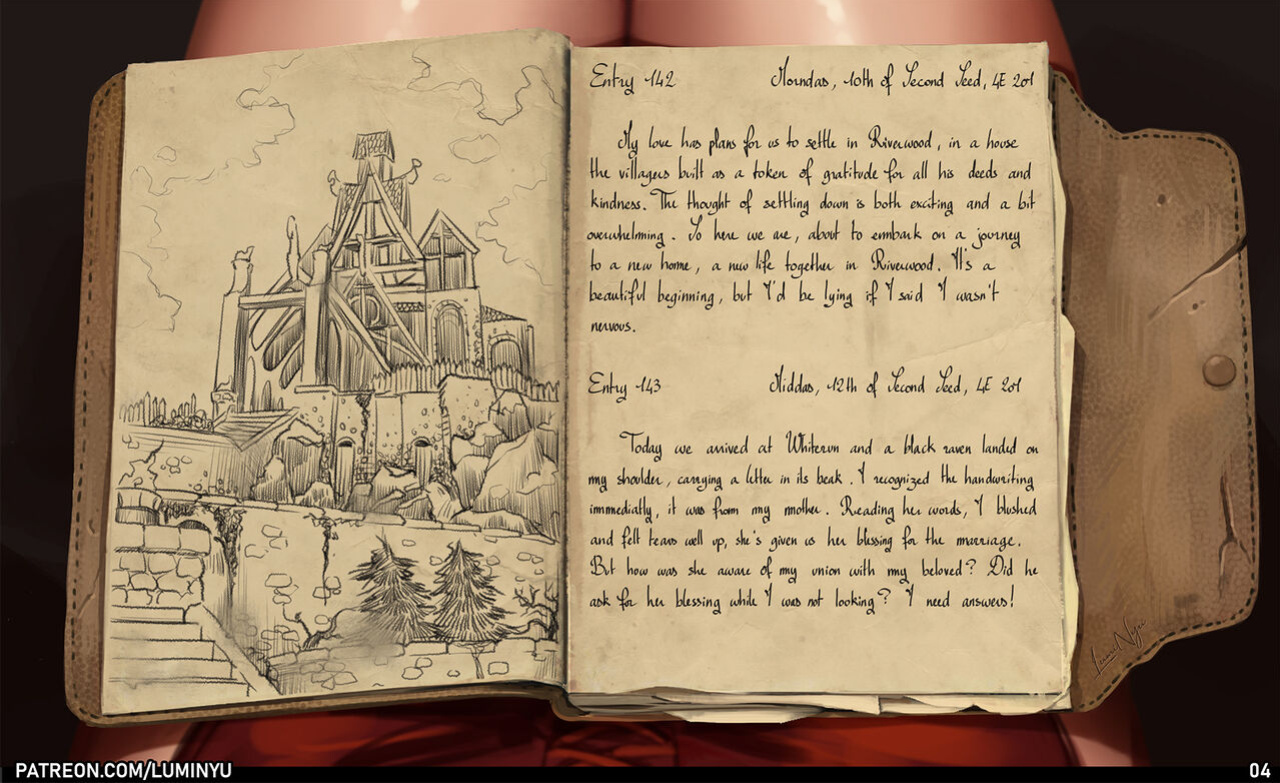 Entry 142 Morndas, 10th of Second Seed, 4E 201
My love has plans for us to settle in Riverwood, in a house
the villagers built as a token of gratitude for all his deeds and
kindness. The thought of settling down is both exciting and a bit
overwhelming. So here we are, about to embark on a journey
to a new home, a new life together in Riverwood. It's a
beautiful beginning, but I'd be lying if I said I wasn't
nervous.
Entry 143 Middas, 12th of Second Seed, 4E 201
Today we arrived at Whiterun and a black raven landed on
my shoulder, carrying a letter in its beak. I recognized the handwriting
immediately, it was from my mother. Reading her words, I blushed
and felt tears well up, she's given us her blessing for the marriage.
But how was she aware of my union with my beloved? Did he
ask for her blessing while I was not looking? I need answers!
PATREON.COM/LUMINYU
04